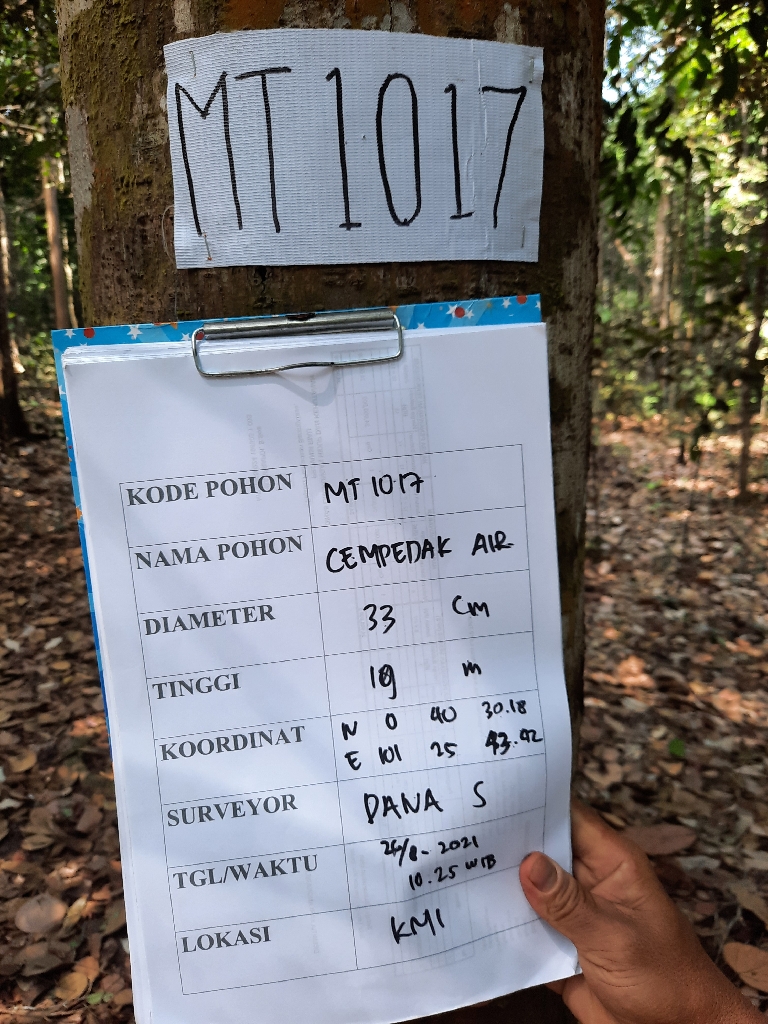 MT 1017
KODE POHON MT 1017
NAMA POHON CEMPEDAK AIR
DIAMETER 33 Cm
TINGGI 19 m
KOORDINAT N 0 40 30.18
E 101 25 43.42
SURVEYOR DANA S
TGL/WAKTU 24/8-2021
10.25 WIB
LOKASI KMI